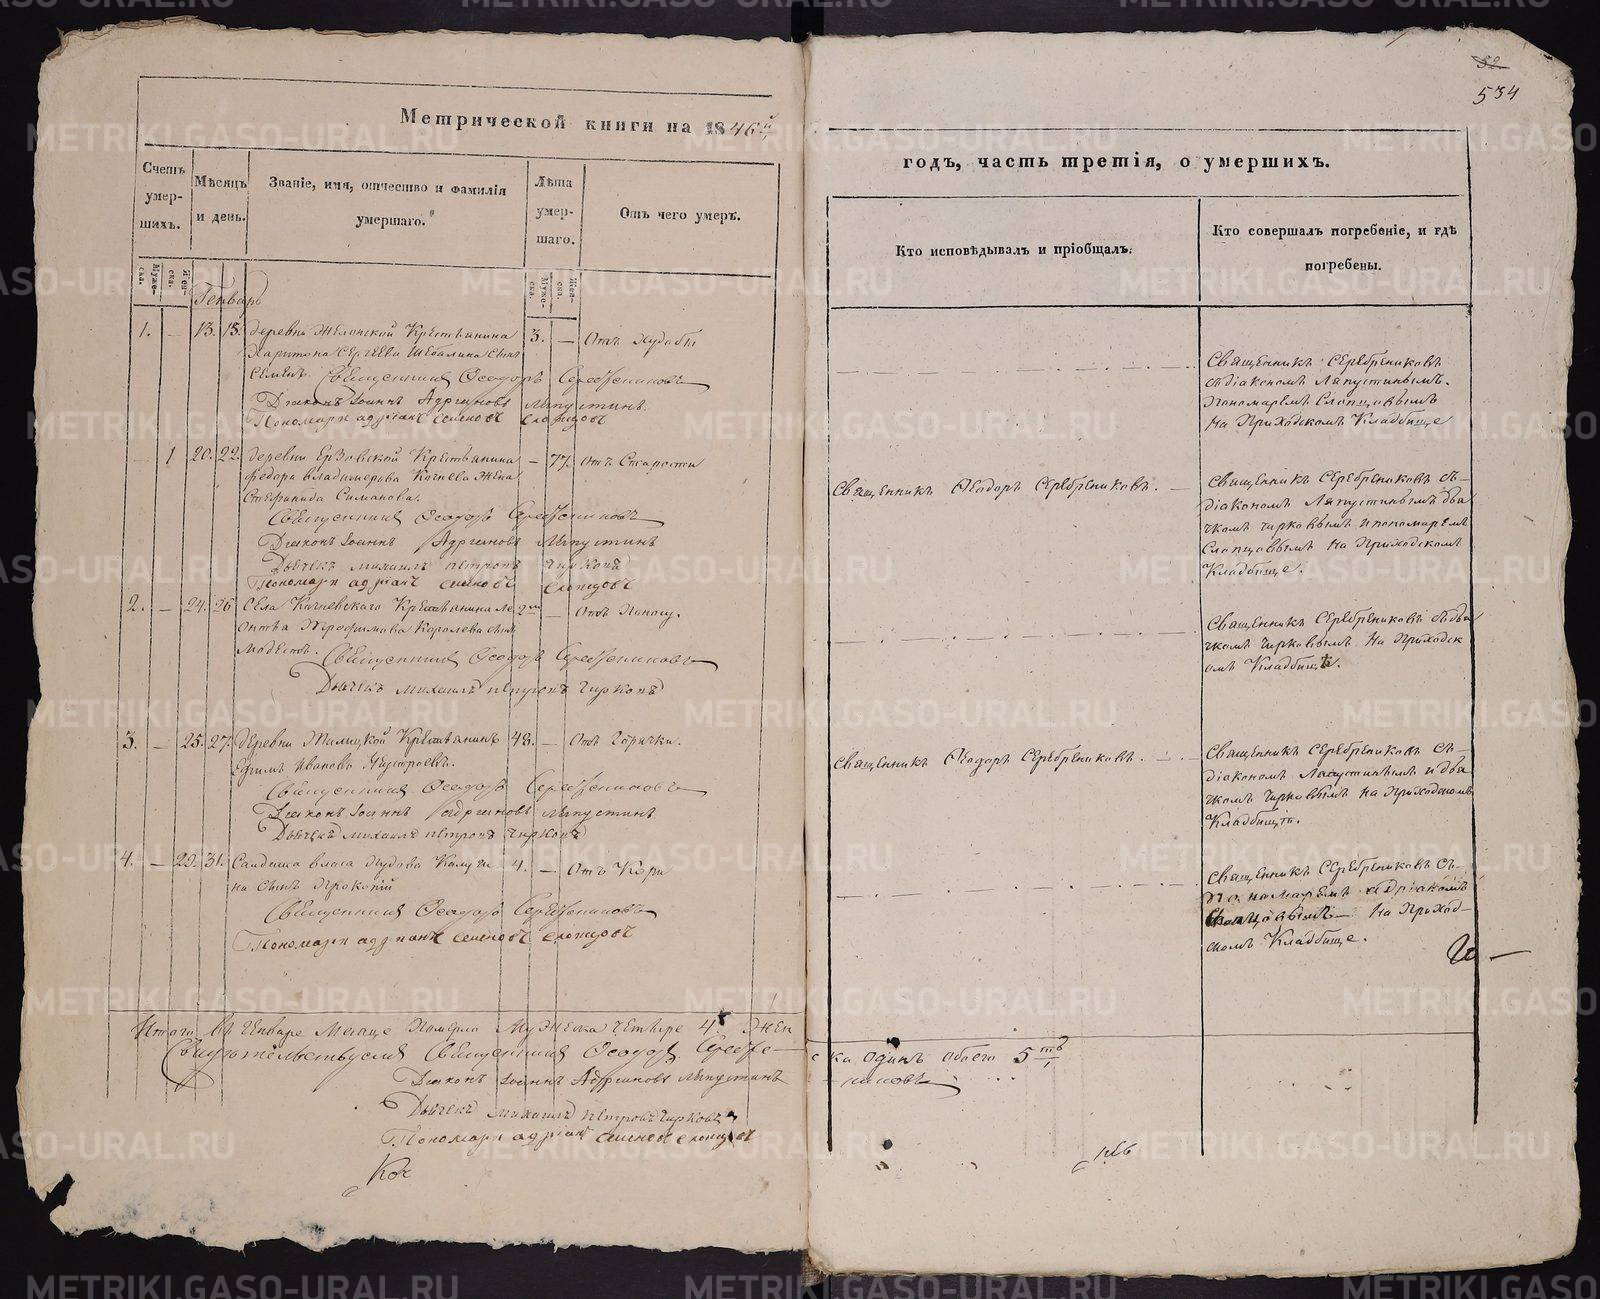 52
534
Метрической книги на 1846й
годъ, часть третія, о умершихъ.
Счетъ умер-шихъ.
Мѣсяцъ и день.
Званіе, имя, отчество и фамилія умершаго.
Лѣта умер-шаго.
Отъ чего умеръ.
Кто исповѣдывалъ и пріобщалъ.
Кто совершалъ погребеніе, и гдѣ погребены.
Муже-ска.
Жен-ска.
Муже-ска.
Жен-ска.
Генварь
1. — 13. 15. деревни Крестьянина 3. — Отъ
Харитона Сергеева Шебалина сынъ
Семенъ. Священникъ Ѳеодоръ Серебрениковъ
Діаконъ Іоаннъ Адріановъ Ляпустинъ
Пономарь адріанъ семеновъ слопцовъ
Священникъ Серебрениковъ
съ діакономъ Ляпустинымъ.
Пономаремъ Слопцовымъ
на Приходскомъ Кладбище
1 20. 22. деревни Ерзовской Крестьянина — 77. отъ Старости
федора владимерова Кочнева жена
Стефанида Симанова.
Священникъ Ѳеодоръ Серебрениковъ
Діаконъ Іоаннъ Адріановъ Ляпустинъ
Дьячекъ михаилъ петровъ Чирковъ
Пономарь адріанъ семеновъ слопцовъ
Священникъ Ѳеодоръ Серебрениковъ. —
Священникъ Серебрениковъ съ
діакономъ Ляпустинымъ дья
чкомъ чирковымъ и пономаремъ
Слопцовымъ на Приходскомъ
Кладбище.
2. — 24. 26 Села Кочневскаго Крестьянина Ле 2 — Отъ Поносу.
онтья Трофимова Королева сынъ
Модестъ. Священникъ Ѳеодоръ Серебрениковъ
Дьячекъ михаилъ петровъ Чирковъ
Священникъ Серебрениковъ съ дья
чкомъ Чирковымъ На Приходск
омъ Кладбище.
3. — 25. 27. деревни Крестьянинъ 48. — Отъ Горячки.
Ефимъ Ивановъ
Священникъ Ѳеодоръ Серебрениковъ
Діаконъ Іоаннъ Адріановъ Ляпустинъ
Дьячекъ михаилъ петровъ чирковъ
Священникъ Ѳеодоръ Серебрениковъ.
Священникъ Серебрениковъ съ
діакономъ Ляпустинымъ и дья
чкомъ Чирковымъ на Приходскомъ
Кладбищѣ.
4. — 29. 31. Солдата власа 4. — Отъ Кори
на сынъ Прокопій
Священникъ Ѳеодоръ Серебрениковъ
Пономарь адріанъ семеновъ слопцовъ
Священникъ Серебрениковъ съ
пономаремъ адріаномъ
Слопцовымъ — На Приход-
скомъ Кладбище.
Итого въ Генваре Месяце Померло Мужеска четыре 4. Жен
ска одинъ обоего 5ть
Свидѣтельствуемъ Священникъ Ѳеодоръ Серебре-
никовъ
Діаконъ Іоаннъ Адріановъ Ляпустинъ
Дьячекъ михаилъ петровъ чирковъ
Пономарь адріанъ семеновъ слопцовъ